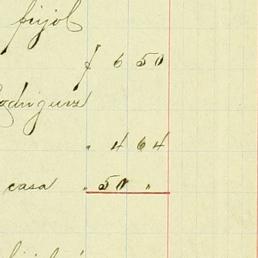 feijol
$ 6 50
Rodriguez
" 4 64
casa " 50 "